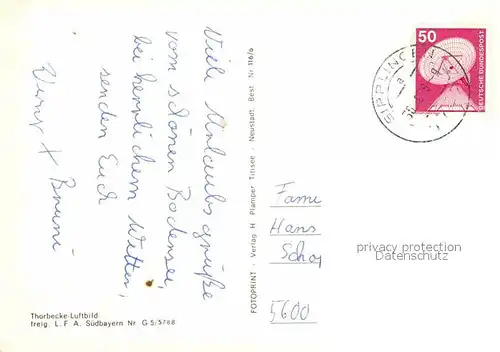 Viele Urlaubsgrüße
vom schönen Bodensee,
bei herrlichem Wetter,
senden Euch
Thorbecke-Luftbild
freig. L. F. A. Südbayern Nr G 5/5788
FOTOPRINT - Verlag H Plamper Titisee - Neustadt Best Nr 116/6
50
DEUTSCHE BUNDESPOST
SIPPLINGEN
Fam
Hans
5600
privacy protection
Datenschutz